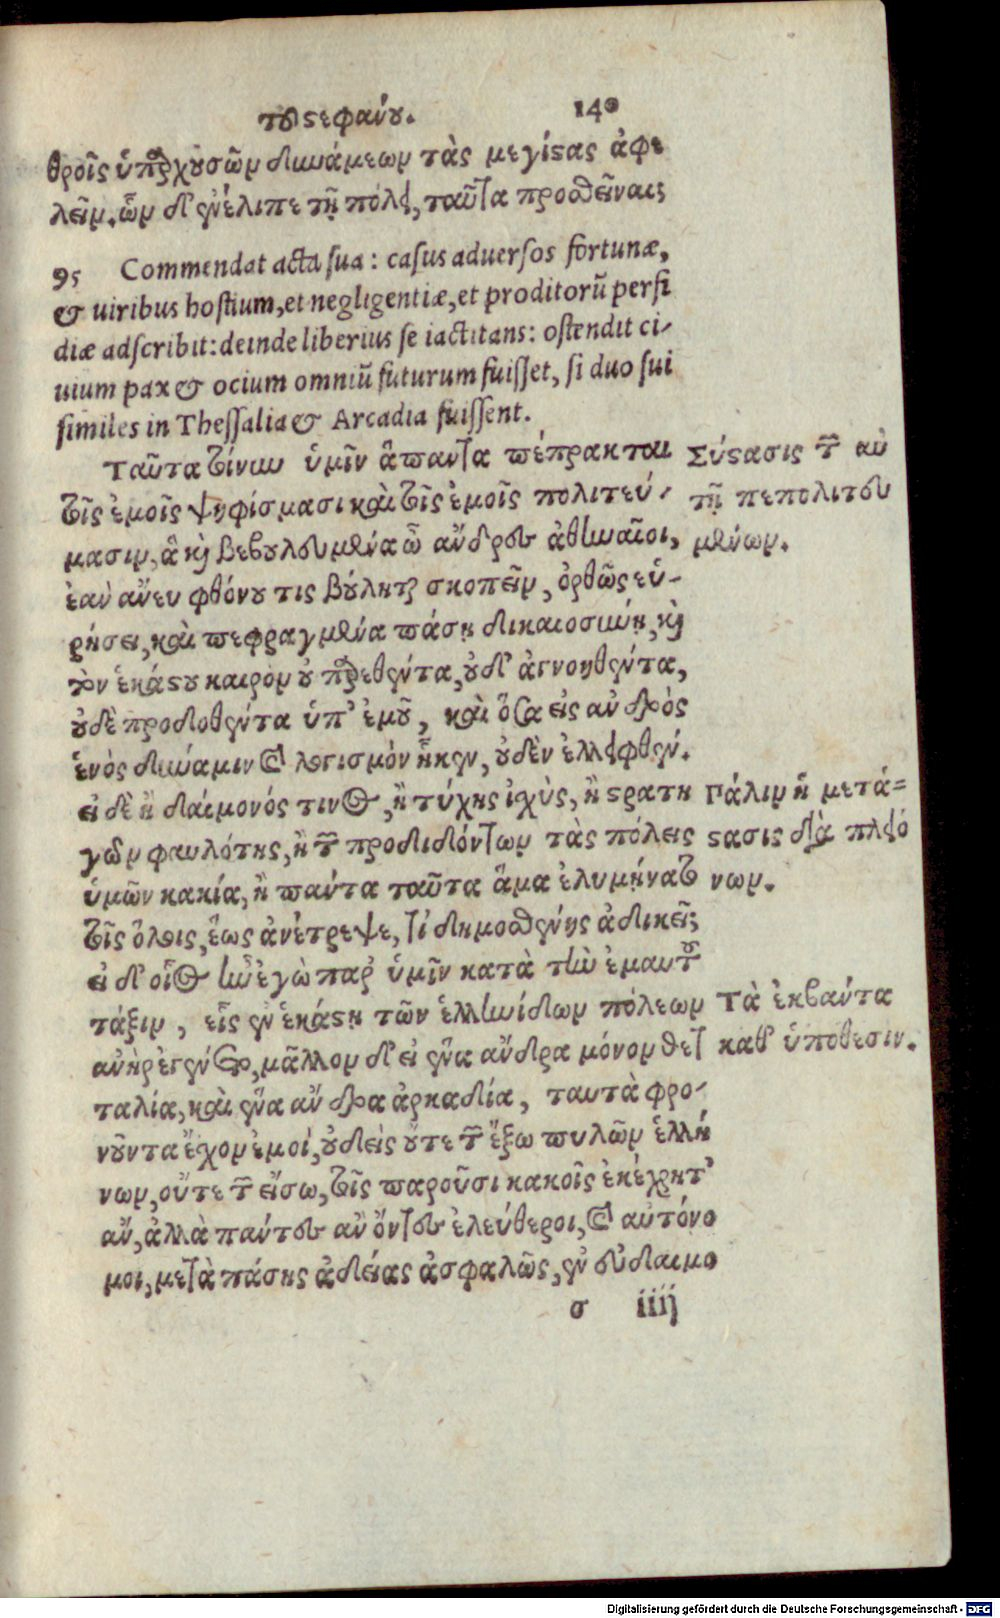 τοῦ στεφάνου. 140
θροῖς ὑπαρχουσῶν δυνάμεων τὰς μεγίστας ἀφε
λεῖν. ὧν δ' ἐνέλιπε τῇ πόλει, ταῦτα προσθεῖναι;
95 Commendat acta sua: casus aduersos fortunæ,
& uiribus hostium, et negligentiæ, et proditorũ perfi
diæ adscribit: deinde liberius se iactitans: ostendit ci-
uium pax & ocium omniũ futurum fuisset, si duo sui
similes in Thessalia & Arcadia fuissent.
Ταῦτα τοίνυν ὑμῖν ἅπαντα πέπρακται
τοῖς ἐμοῖς ψηφίσμασι καὶ τοῖς ἐμοῖς πολιτεύ-
μασιν, ἃ καὶ βεβουλευμένα ὦ ἄνδρες ἀθηναῖοι,
ἐὰν ἄνευ φθόνου τις βούληται σκοπεῖν, ὀρθῶς εὑ-
ρήσει, καὶ πεπραγμένα πάσῃ δικαιοσύνῃ, καὶ
τὸν ἑκάστου καιρὸν οὐ παρεθέντα, οὐδ' ἀγνοηθέντα,
οὐδὲ προδοθέντα ὑπ' ἐμοῦ, καὶ ὅσα εἰς ἀνδρὸς
ἑνὸς δύναμιν καὶ λογισμὸν ἧκεν, οὐδὲν ἐλλειφθέν.
εἰ δὲ ἢ δαίμονός τινος, ἢ τύχης ἰσχὺς, ἢ στρατη
γῶν φαυλότης, ἢ τῶν προδιδόντων τὰς πόλεις
ὑμῶν κακία, ἢ πάντα ταῦτα ἅμα ἐλυμήνατο
τοῖς ὅλοις, ἕως ἀνέτρεψε, τί δημοσθένης ἀδικεῖ;
εἰ δ' οἷος ἦν ἐγὼ παρ' ὑμῖν κατὰ τὴν ἐμαυτοῦ
τάξιν, εἷς ἐν ἑκάστῃ τῶν ἑλληνίδων πόλεων
ἀνὴρ ἐγένετο, μᾶλλον δ' εἰ ἕνα ἄνδρα μόνον θετ
ταλία, καὶ ἕνα ἄνδρα ἀρκαδία, ταυτὰ φρο-
νοῦντα ἔχον ἐμοί, οὐδεὶς οὔτε τῶν ἔξω πυλῶν ἑλλή
νων, οὔτε τῶν εἴσω, τοῖς παροῦσι κακοῖς ἐκέχρητ'
ἂν, ἀλλὰ πάντες ἂν ὄντες ἐλεύθεροι, καὶ αὐτόνο
μοι, μετὰ πάσης ἀδείας ἀσφαλῶς, ἐν εὐδαιμο
σ iiij
Σύστασις τῶν αὐ
τῇ πεπολιτευ
μένων.
Πάλιν ἡ μετά-
στασις διὰ πλειό
νων.
Τὰ ἐκβάντα
καθ' ὑπόθεσιν.
Digitalisierung gefördert durch die Deutsche Forschungsgemeinschaft - DFG